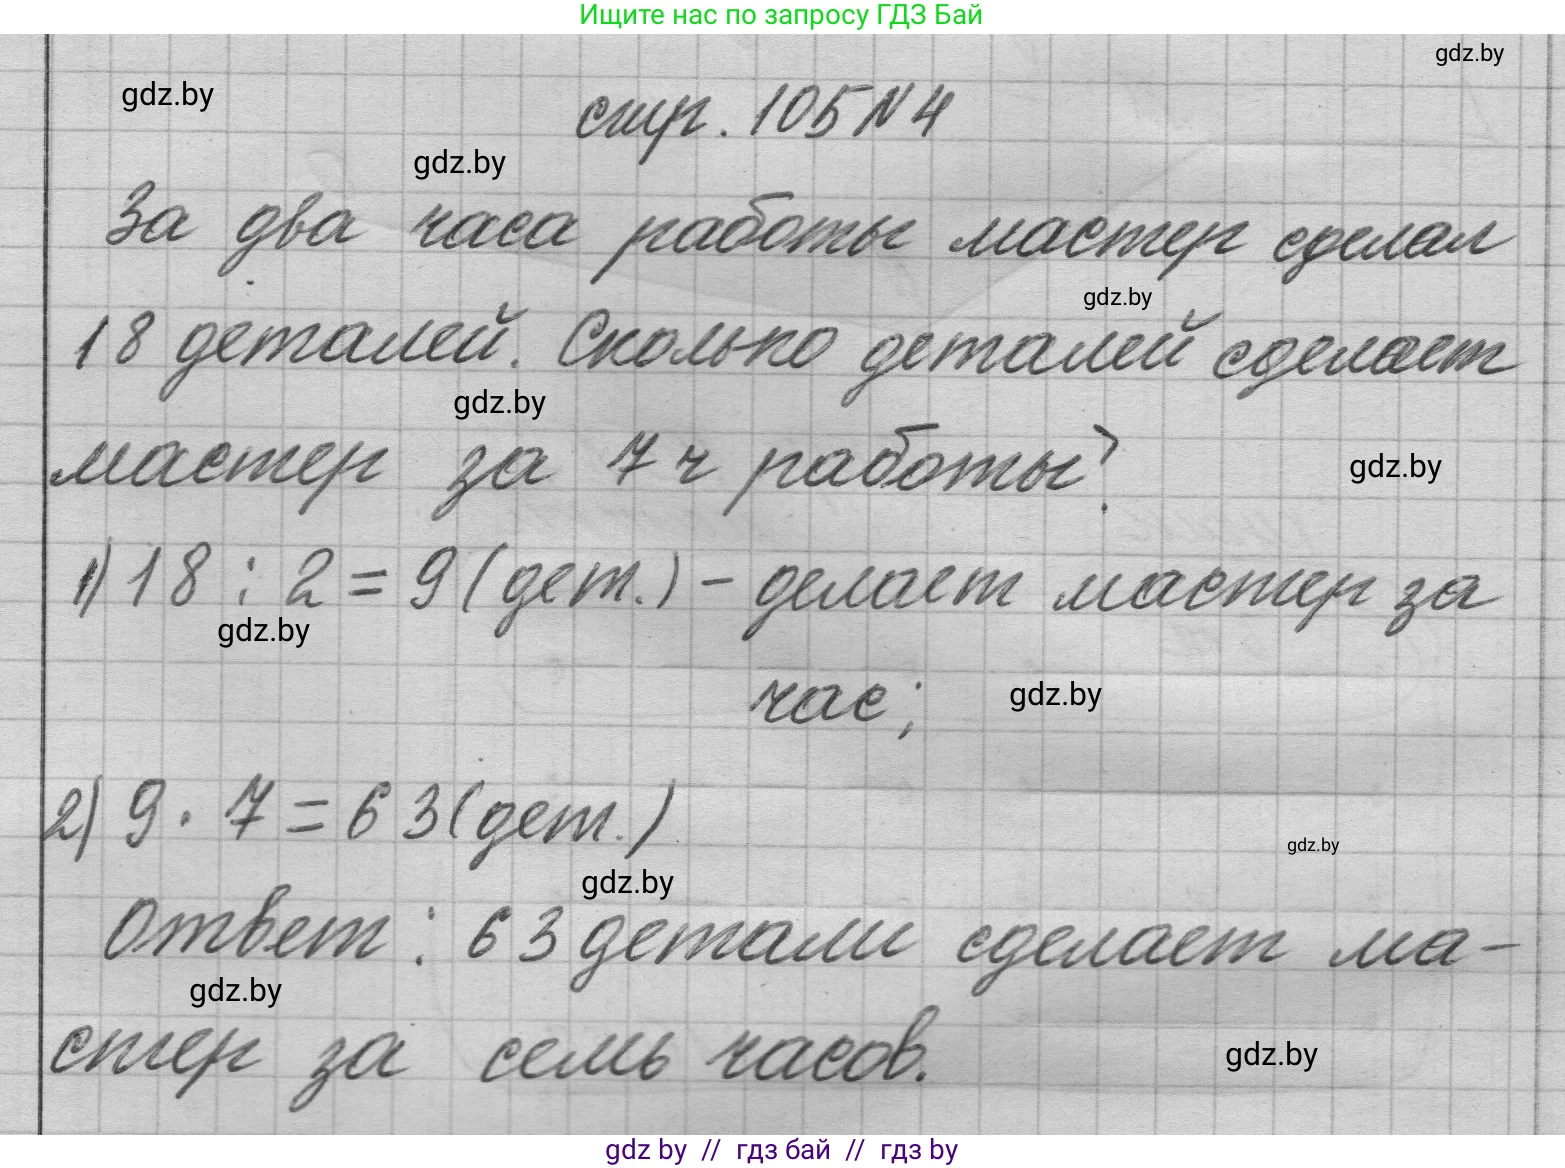 Ищите нас по запросу ГДЗ Бай
gdz.by
gdz.by
стр. 105 N 4
gdz.by
За два часа работы мастер сделал
gdz.by
18 деталей. Сколько деталей сделает
gdz.by
мастер за 7 ч работы?
gdz.by
1) 18 : 2 = 9 (дет.) - делает мастер за
gdz.by
час;
gdz.by
2) 9 · 7 = 63 (дет.)
gdz.by
gdz.by
Ответ: 63 детали сделает ма-
gdz.by
стер за семь часов.
gdz.by
gdz by // гдз бай // гдз by